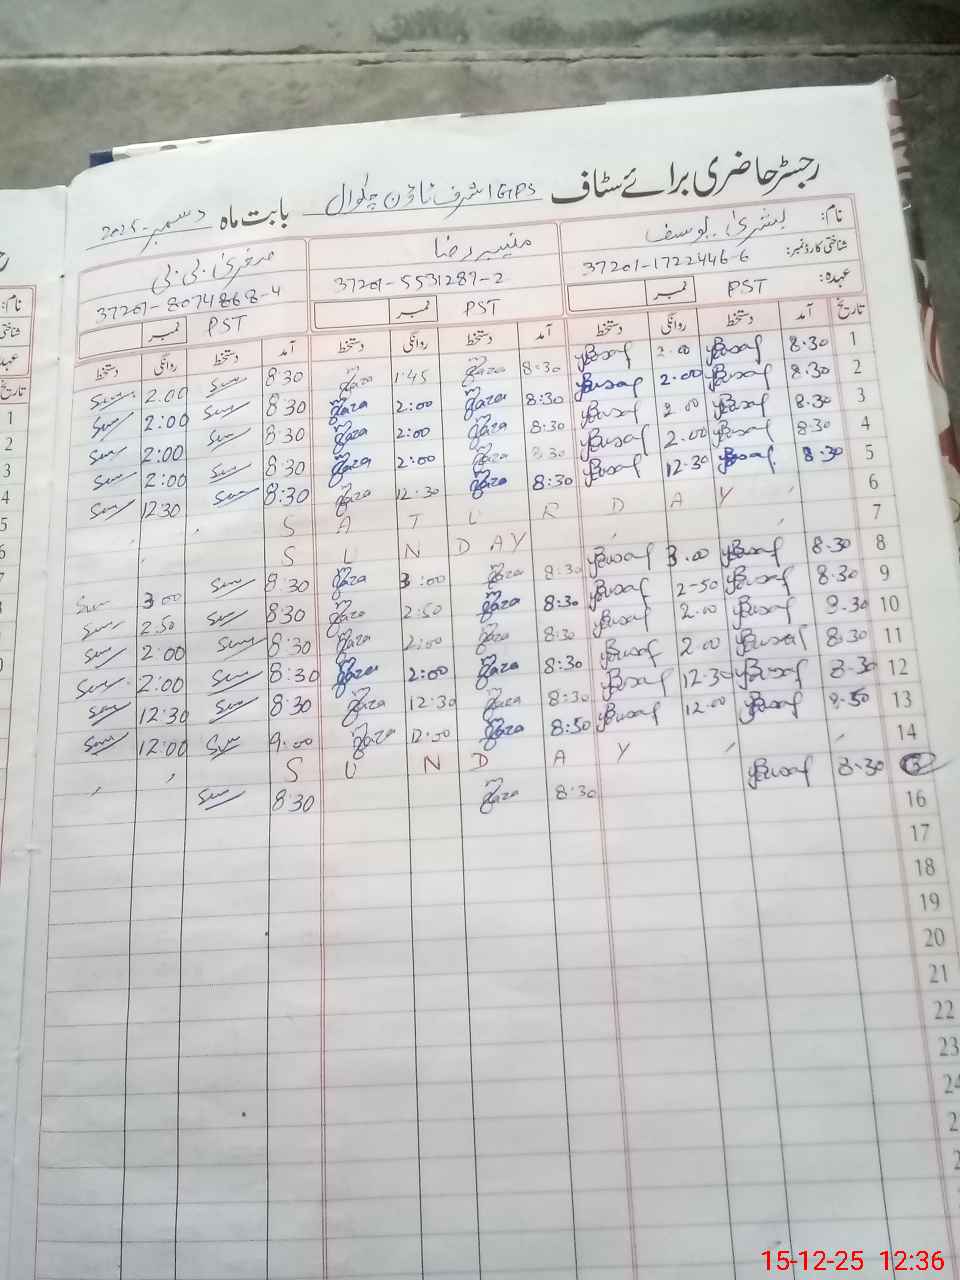 رجسٹر حاضری برائے سٹاف GPS اشرف ٹاؤن چکوال بابت ماہ دسمبر 2025
نام: بشریٰ یوسف منیبہ رضا بی بی
شناختی کارڈ نمبر: 37201-1722446-6 37201-5531287-2 37201-8074868-4
عہدہ: PST نمبر PST نمبر PST نمبر
تاریخ آمد دستخط روانگی دستخط آمد دستخط روانگی دستخط آمد دستخط روانگی دستخط
1 8:30 Yousaf 2.00 Yousaf 8:30 Raza 1:45 Raza 8:30 2.00
2 8:30 Yousaf 2.00 Yousaf 8:30 Raza 2:00 Raza 8:30 2:00
3 8:30 Yousaf 2.00 Yousaf 8:30 Raza 2:00 Raza 8:30 2:00
4 8:30 Yousaf 2.00 Yousaf 8:30 Raza 2:00 Raza 8:30 2:00
5 8:30 Yousaf 12.30 Yousaf 8:30 Raza 12:30 Raza 8:30 12:30
6 SATURDAY
7 SUNDAY
8 8.30 Yousaf 3.00 Yousaf 8:30 Raza 3:00 Raza 8:30 3:00
9 8.30 Yousaf 2-50 Yousaf 8:30 Raza 2:50 Raza 8:30 2.50
10 8.30 Yousaf 2.00 Yousaf 8:30 Raza 2:00 Raza 8:30 2:00
11 8:30 Yousaf 2.00 Yousaf 8:30 Raza 2:00 Raza 8:30 2:00
12 8.30 Yousaf 12.30 Yousaf 8:30 Raza 12:30 Raza 8:30 12:30
13 Yousaf 12.00 Yousaf 8:50 Raza 12:00 Raza 9:00 12:00
14 SUNDAY
15 8.30 Yousaf 8:30 Raza 8:30
16
17
18
19
20
21
22
23
15-12-25 12:36